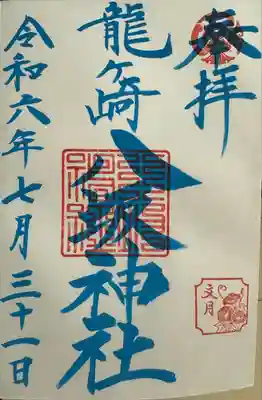 奉拝
龍ヶ崎
八坂神社
文月
令和六年七月三十一日